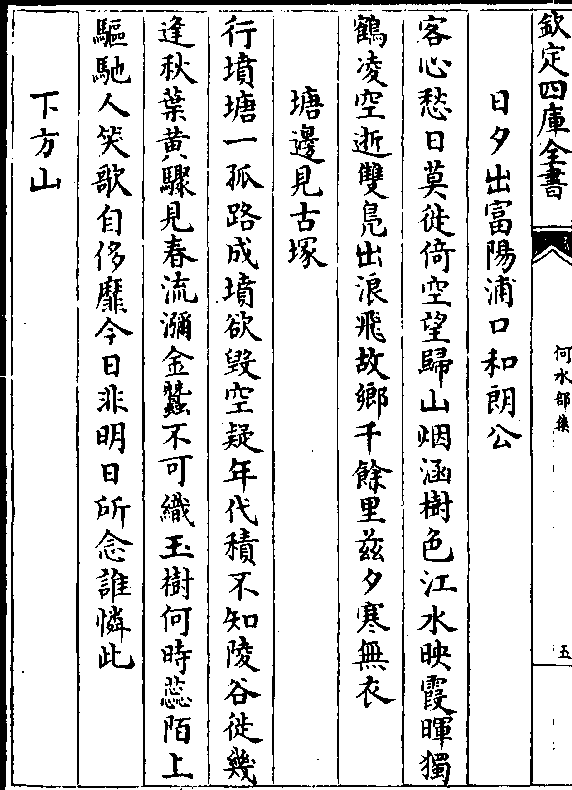 欽定四庫全書
何水部集
五
日夕出富陽浦口和朗公
客心愁日莫徙倚空望歸山烟涵樹色江水映霞暉獨
鶴凌空逝雙鳧出浪飛故鄉千餘里茲夕寒無衣
塘邊見古塚
行墳塘一孤路成墳欲毀空疑年代積不知陵谷徙幾
逢秋葉黃驟見春流瀰金蠶不可織玉樹何時蕊陌上
驅馳人笑歌自侈靡今日非明日所念誰憐此
下方山